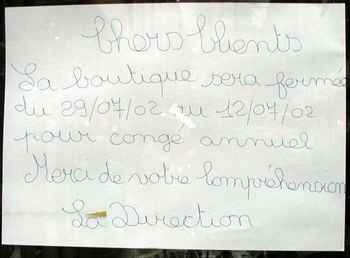 Chers Clients
La boutique sera fermée
du 29/07/02 au 12/07/02
pour congé annuel
Merci de votre Compréhension
La Direction